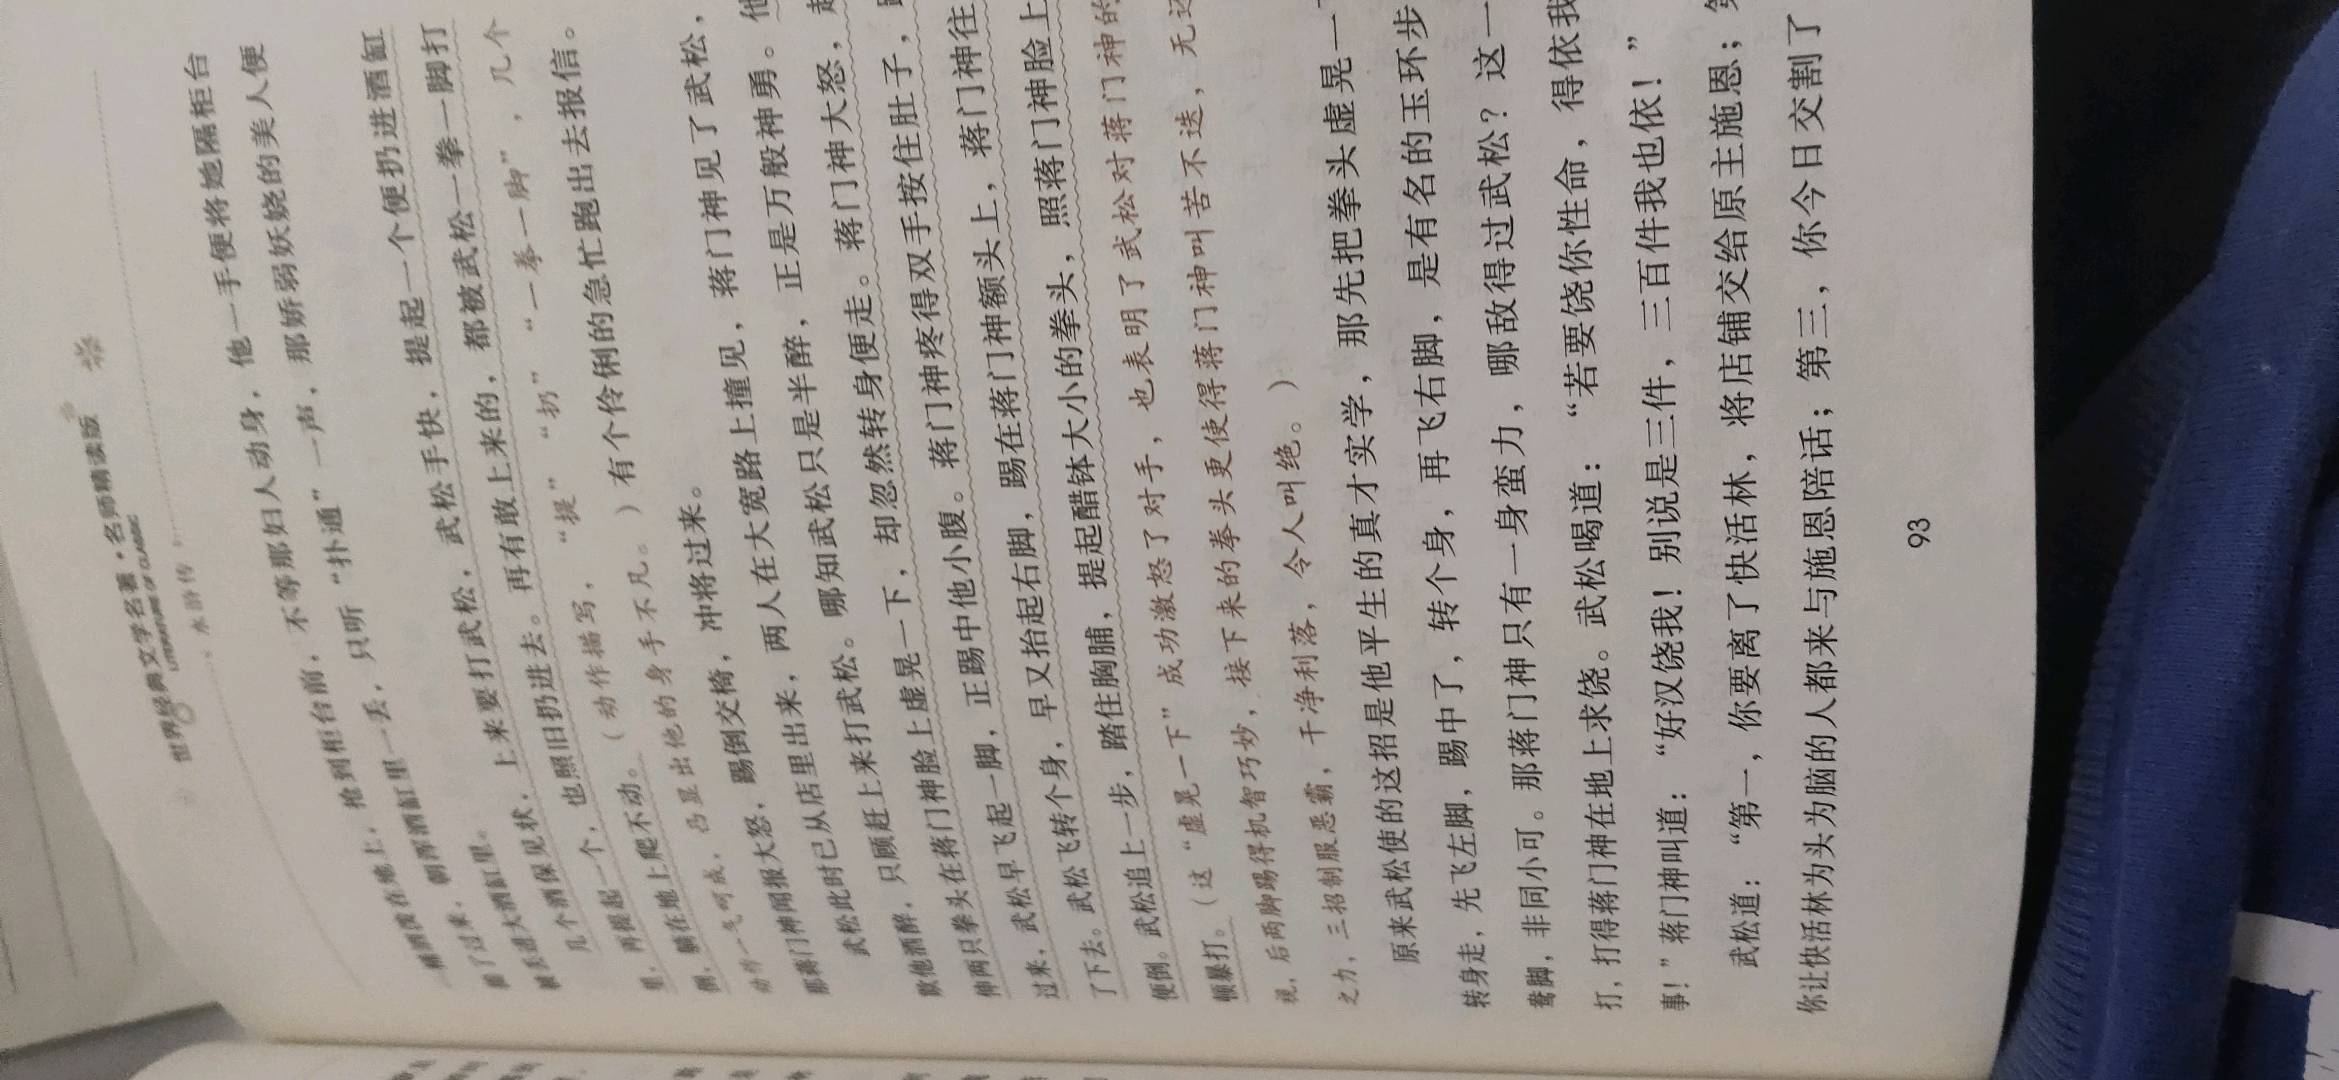 世界经典文学名著·名师精读版
LITERATURE OF CLASSIC
水浒传
桶酒泼在地上，抢到柜台前，不等那妇人动身，他一手便将她隔柜台
提了过来，朝浑酒缸里一丢，只听“扑通”一声，那娇弱妖娆的美人便
被丢进大酒缸里。
几个酒保见状，上来要打武松，武松手快，提起一个便扔进酒缸
里，再提起一个，也照旧扔进去。再有敢上来的，都被武松一拳一脚打
倒，躺在地上爬不动。（动作描写，“提”“扔”“一拳一脚”，几个
动作一气呵成，凸显出他的身手不凡。）有个伶俐的急忙跑出去报信。
那蒋门神闻报大怒，踢倒交椅，冲将过来。
武松此时已从店里出来，两人在大宽路上撞见，蒋门神见了武松，
欺他酒醉，只顾赶上来打武松。哪知武松只是半醉，正是万般神勇。他
伸两只拳头在蒋门神脸上虚晃一下，却忽然转身便走。蒋门神大怒，
过来，武松早飞起一脚，正踢中他小腹。蒋门神疼得双手按住肚子，
了下去。武松飞转个身，早又抬起右脚，踢在蒋门神额头上，蒋门神往
便倒。武松追上一步，踏住胸脯，提起醋钵大小的拳头，照蒋门神脸上
顿暴打。（这“虚晃一下”成功激怒了对手，也表明了武松对蒋门神的
视，后两脚踢得机智巧妙，接下来的拳头更使得蒋门神叫苦不迭，无还
之力，三招制服恶霸，干净利落，令人叫绝。）
原来武松使的这招是他平生的真才实学，那先把拳头虚晃一
转身走，先飞左脚，踢中了，转个身，再飞右脚，是有名的玉环步
鸯脚，非同小可。那蒋门神只有一身蛮力，哪敌得过武松？这一
打，打得蒋门神在地上求饶。武松喝道：“若要饶你性命，得依我
事！”蒋门神叫道：“好汉饶我！别说是三件，三百件我也依！”
武松道：“第一，你要离了快活林，将店铺交给原主施恩；第
你让快活林为头为脑的人都来与施恩陪话；第三，你今日交割了
93